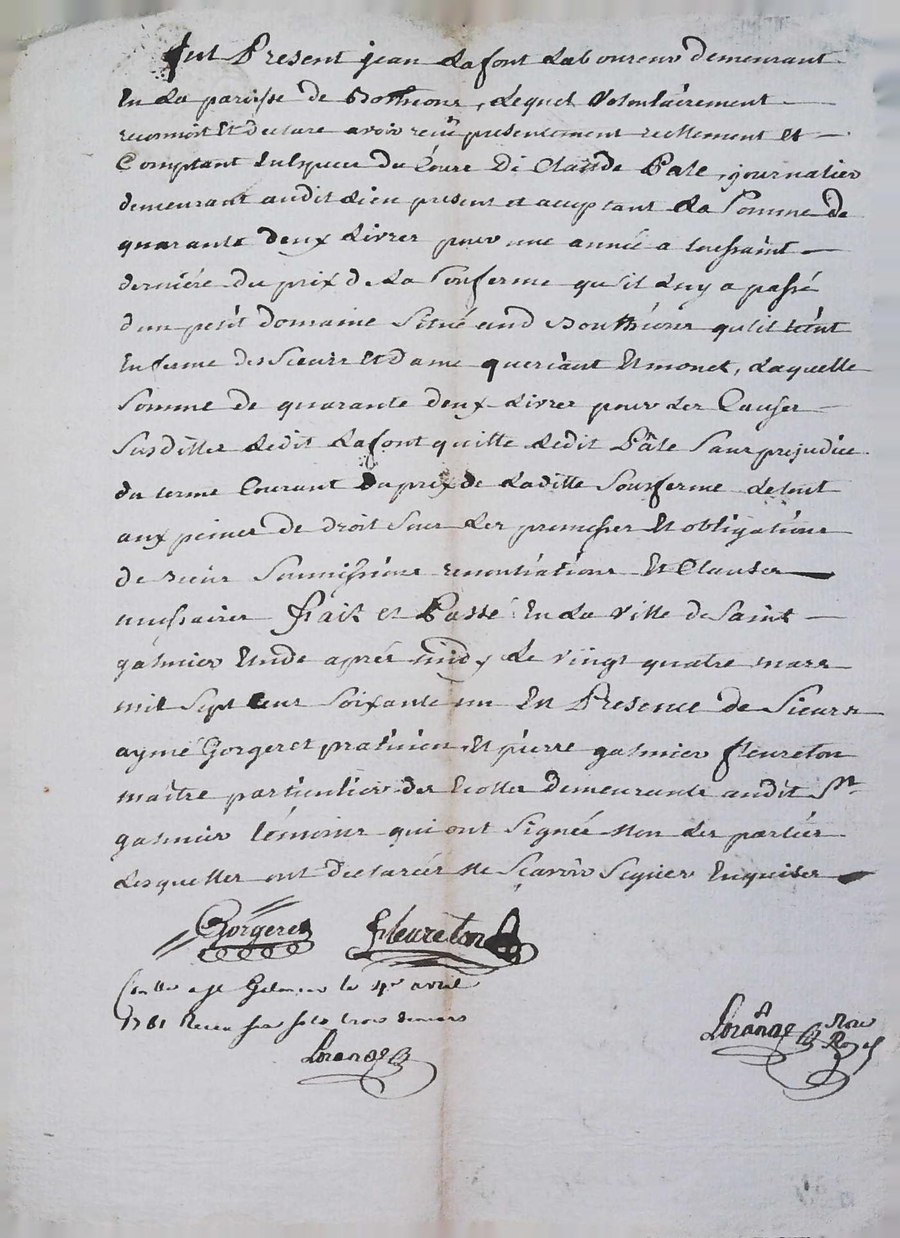 fut Present jean Lafont Laboureur demeurant
En La parisse de Bothieons, Lequel Volontairement
reconnoit Et declare avoir reçû presentement reellement et
Comptant du De Claude Pale, journalier
demeurant audit Lieu present et aceptant La Somme de
quarante deux Livres pour une année a toussaint
derniére du prix de La Sousferme qu'il Luy a passé
dun petit domaine Situé aud Bouthéons qu'il tient
En ferme des Sieurs Et Dame queriaut Et monet, Laquelle
Somme de quarante deux Livres pour Les Causes
Susdittes Ledit Lafont quitte Ledit Pâle Sans prejudice
du terme Courant du prix de Laditte Sousferme Le tout
aux peines de droit Sous Les promesses Et obligations
de Soumissions renontiations Et Clauses
necessaires Fait et Passé En La Ville de Saint
galmier Etude aprés midy Le vingt quatre mars
mil Sept Cens Soixante un En Presence de Sieurs
aymé Gorgeret praticien Et pierre galmier fleureton
maitre particulier des Ecolles Demeurants audit St
galmier témoins qui ont Signée Non Les parties
Lesquelles ont declarées Ne Sçavoir Signer Enquises
Gorgeret Fleureton
Con lle a St Galmier le 4e avril
1761 Recu six sols trois deniers
Lorange
Lorange Nore Royal